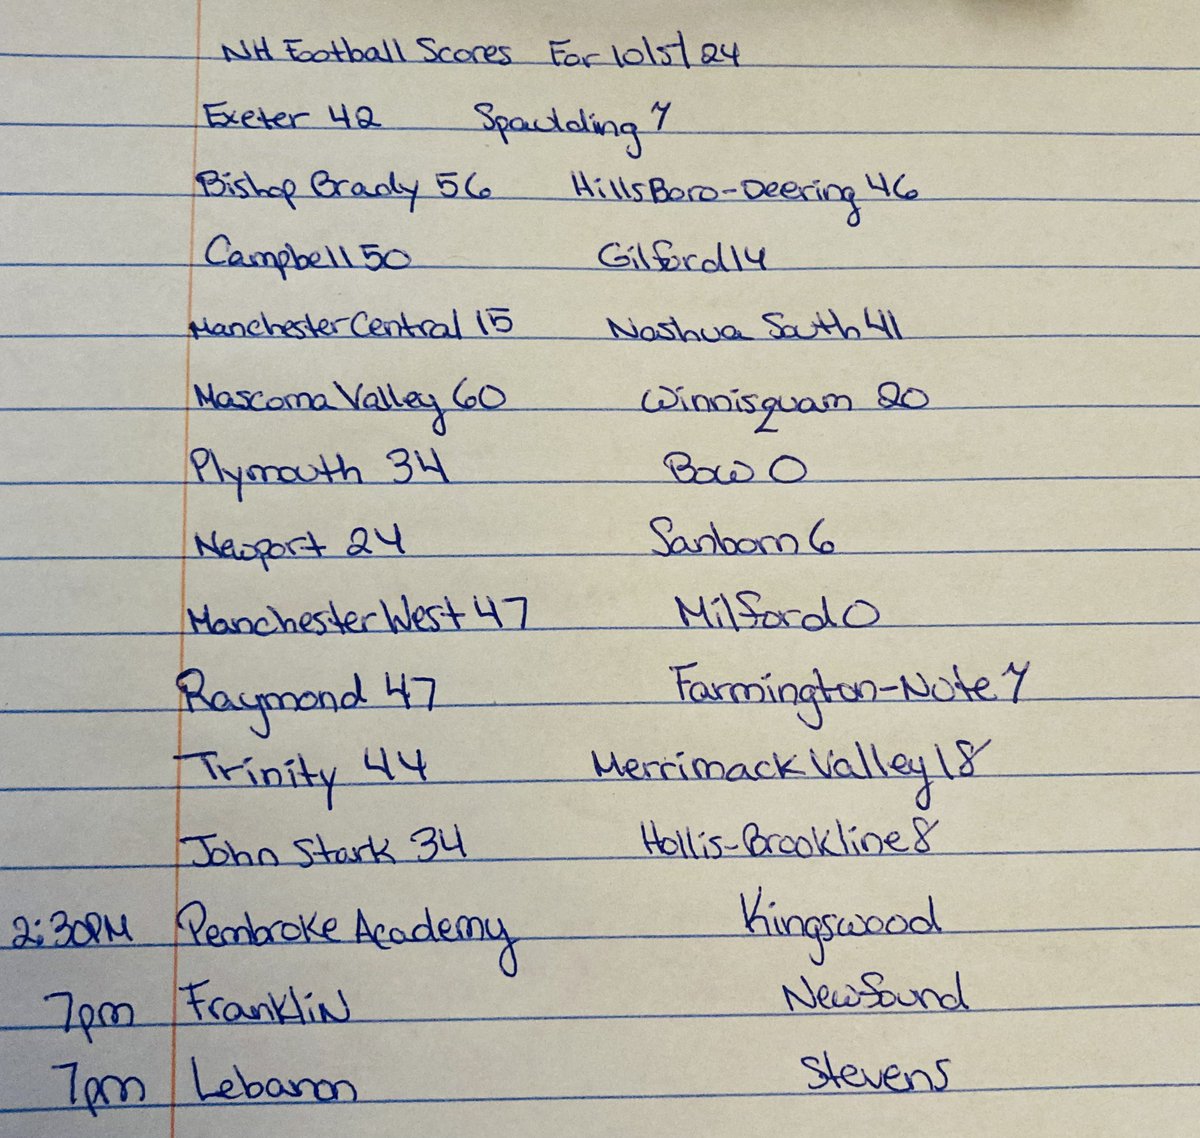 NH Football Scores For 10/5/24
Exeter 42 Spaulding 7
Bishop Brady 56 HillsBoro-Deering 46
Campbell 50 Gilford 14
Manchester Central 15 Nashua South 41
Mascoma Valley 60 Winnisquam 20
Plymouth 34 Bow 0
Newport 24 Sanborn 6
Manchester West 47 Milford 0
Raymond 47 Farmington-Nute 7
Trinity 44 Merrimack Valley 18
John Stark 34 Hollis-Brookline 8
2:30PM Pembroke Academy Kingswood
7pm Franklin Newfound
7pm Lebanon Stevens